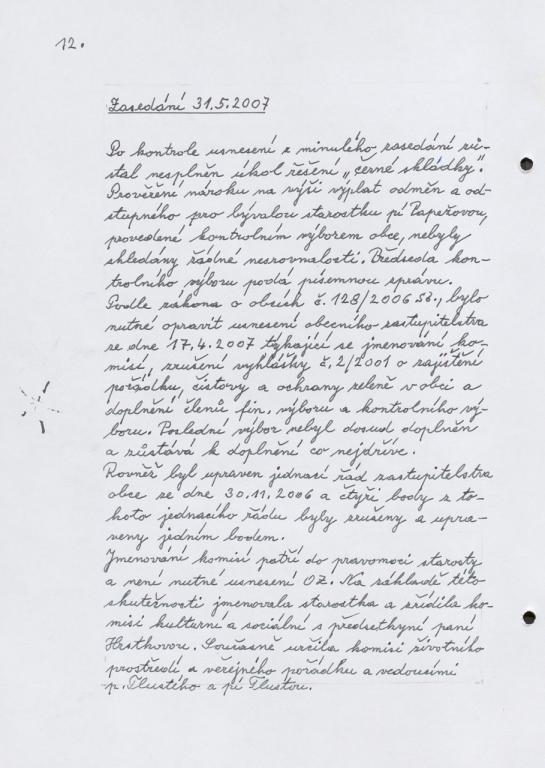 12.
Zasedání 31.5.2007
Po kontrole usnesení z minulého zasedání zů-
stal nesplněn úkol řešení „černé skládky".
Prověření nároku na výši výplat odměn a od-
stupného pro bývalou starostku pí Papežovou,
provedené kontrolním výborem obce, nebyly
shledány žádné nesrovnalosti. Předseda kon-
trolního výboru podá písemnou správu.
Podle zákona o obcích č. 128/2006 Sb., bylo
nutné opravit usnesení obecního zastupitelstva
ze dne 17.4.2007 týkající se jmenování ko-
misí, zrušení vyhlášky č. 2/2001 o zajištění
pořádku, čistoty a ochrany zeleně v obci a
doplnění členů fin. výboru a kontrolního vý-
boru. Poslední výbor nebyl dosud doplněn
a zůstává k doplnění co nejdříve.
Rovněž byl upraven jednací řád zastupitelstva
obce ze dne 30.11.2006 a čtyři body z to-
hoto jednacího řádu byly zrušeny a upra-
veny jedním bodem.
Jmenování komisí patří do pravomoci starosty
a není nutné usnesení OZ. Na základě této
skutečnosti jmenovala starostka a zřídila ko-
misi kulturní a sociální s předsetkyní paní
Hrstkovou. Současně určila komisi životního
prostředí a veřejného pořádku a vedoucími
p. Tlustého a pí Tlustou.